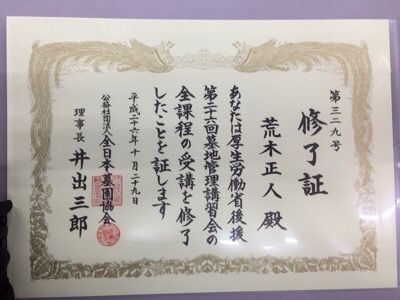 第三二九号
修了証
荒木正人 殿
あなたは厚生労働省後援
第二十六回墓地管理講習会の
全課程の受講を修了
したことを証します
平成二十六年十月二十九日
公益社団法人全日本墓園協会
理事長 井出三郎